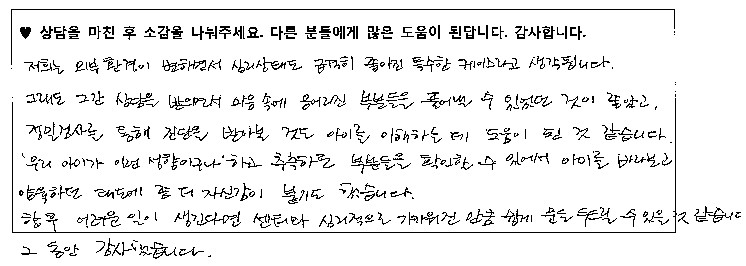 ♥ 상담을 마친 후 소감을 나눠주세요. 다른 분들에게 많은 도움이 된답니다. 감사합니다.
저희는 외부환경이 변하면서 심리상태도 급격히 좋아진 특수한 케이스라고 생각됩니다.
그래도 그간 상담을 받으면서 마음 속에 응어리진 부분들을 풀어낼 수 있었던 것이 좋았고,
정밀검사를 통해 진단을 받아본 것도 아이를 이해하는 데 도움이 된 것 같습니다.
'우리 아이가 이런 성향이구나' 하고 추측하던 부분들을 확인할 수 있어서 아이를 바라보고
양육하던 태도에 좀 더 자신감이 붙기도 했습니다.
향후 어려운 일이 생긴다면 센터와 심리적으로 가까워진 만큼 쉽게 문을 두드릴 수 있을 것 같습니다
그 동안 감사했습니다.